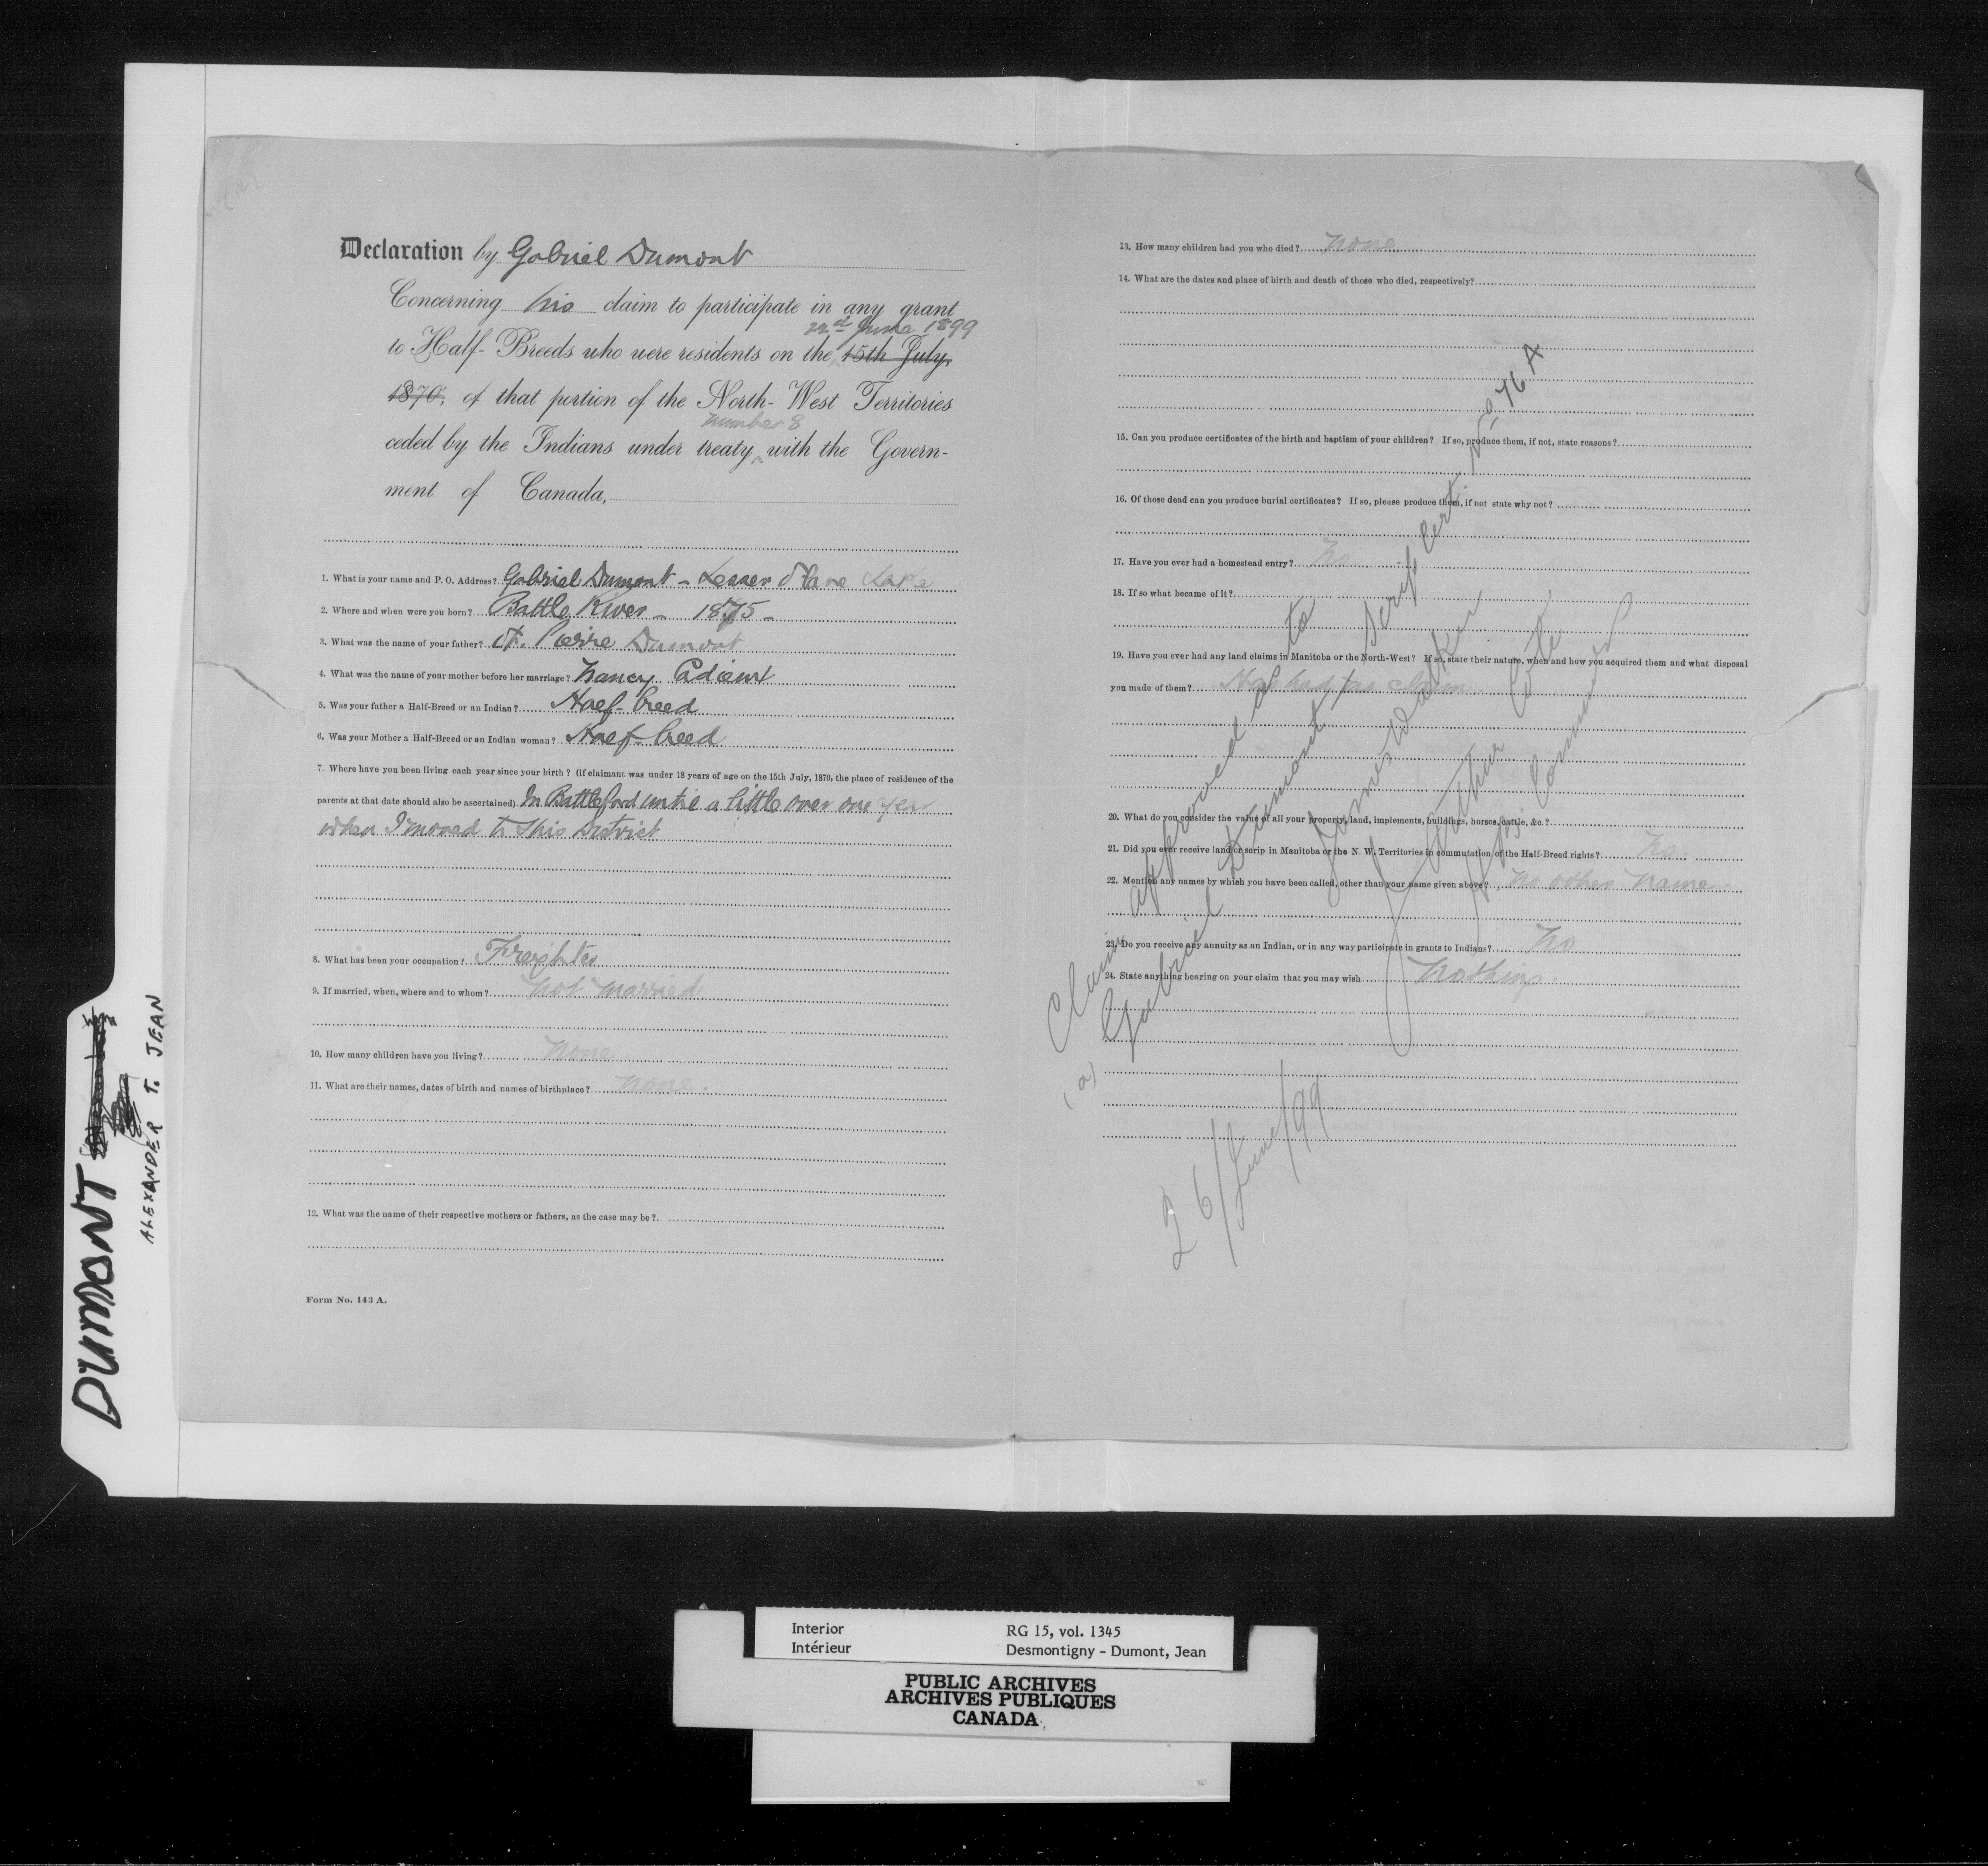 Declaration by Gabriel Dumont
Concerning his claim to participate in any grant
22nd June 1899
to Half-Breeds who were residents on the 15th July,
1870, of that portion of the North-West Territories
number 8
ceded by the Indians under treaty ^ with the Govern-
ment of Canada,
1. What is your name and P. O. Address? Gabriel Dumont - Lesser Slave Lake
2. Where and when were you born? Battle River - 1875 -
3. What was the name of your father? Pierre Dumont
4. What was the name of your mother before her marriage? Nancy
5. Was your father a Half-Breed or an Indian? Half-breed
6. Was your Mother a Half-Breed or an Indian woman? Half-breed
7. Where have you been living each year since your birth? (if claimant was under 18 years of age on the 15th July, 1870, the place of residence of the
parents at that date should also be ascertained). In Battleford until a little over one year
when I moved to this District
8. What has been your occupation? Freighter
9. If married, when, where and to whom? Not married
10. How many children have you living? None
11. What are their names, dates of birth and names of birthplace? None.
12. What was the name of their respective mothers or fathers, as the case may be?
Form No. 143 A.
13. How many children had you who died? None
14. What are the dates and place of birth and death of those who died, respectively?
15. Can you produce certificates of the birth and baptism of your children? If so, produce them, if not, state reasons?
16. Of those dead can you produce burial certificates? If so, please produce them, if not state why not?
17. Have you ever had a homestead entry? No
18. If so what became of it?
19. Have you ever had any land claims in Manitoba or the North-West? If so, state their nature, when and how you acquired them and what disposal
you made of them? Has had no claim
20. What do you consider the value of all your property, land, implements, buildings, horses, cattle, &c.?
21. Did you ever receive land or scrip in Manitoba or the N. W. Territories in commutation of the Half-Breed rights? No.
22. Mention any names by which you have been called, other than your name given above? No other name.
23. Do you receive any annuity as an Indian, or in any way participate in grants to Indians? No
24. State anything bearing on your claim that you may wish Nothing.
Claim approved as to
(a) Gabriel Dumont Scrip Cert. No 76 A
James Walker
J. Arthur Coté
26/June/99
DUMONT
ALEXANDER T. JEAN
Interior RG 15, vol. 1345
Intérieur Desmontigny - Dumont, Jean
PUBLIC ARCHIVES
ARCHIVES PUBLIQUES
CANADA